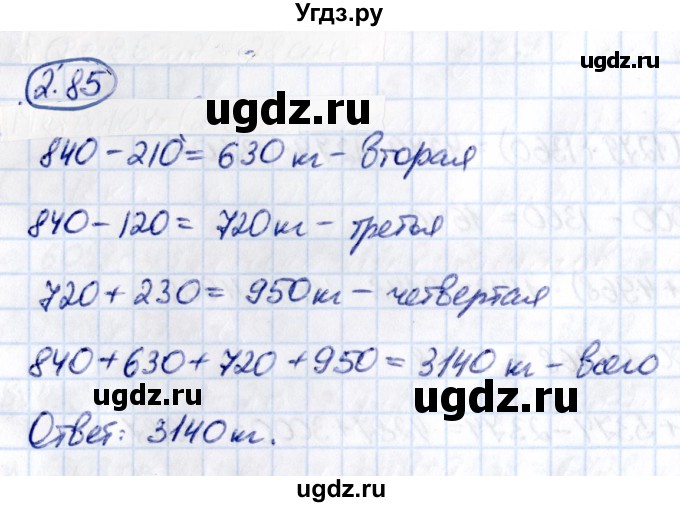 Угдз.ру
ugdz.ru
2.85
ugdz.ru
840 - 210 = 630 кг - вторая
840 - 120 = 720 кг - третья
720 + 230 = 950 кг - четвертая
840 + 630 + 720 + 950 = 3140 кг - всего
ugdz.ru
ugdz.ru
Ответ: 3140 кг.
ugdz.ru